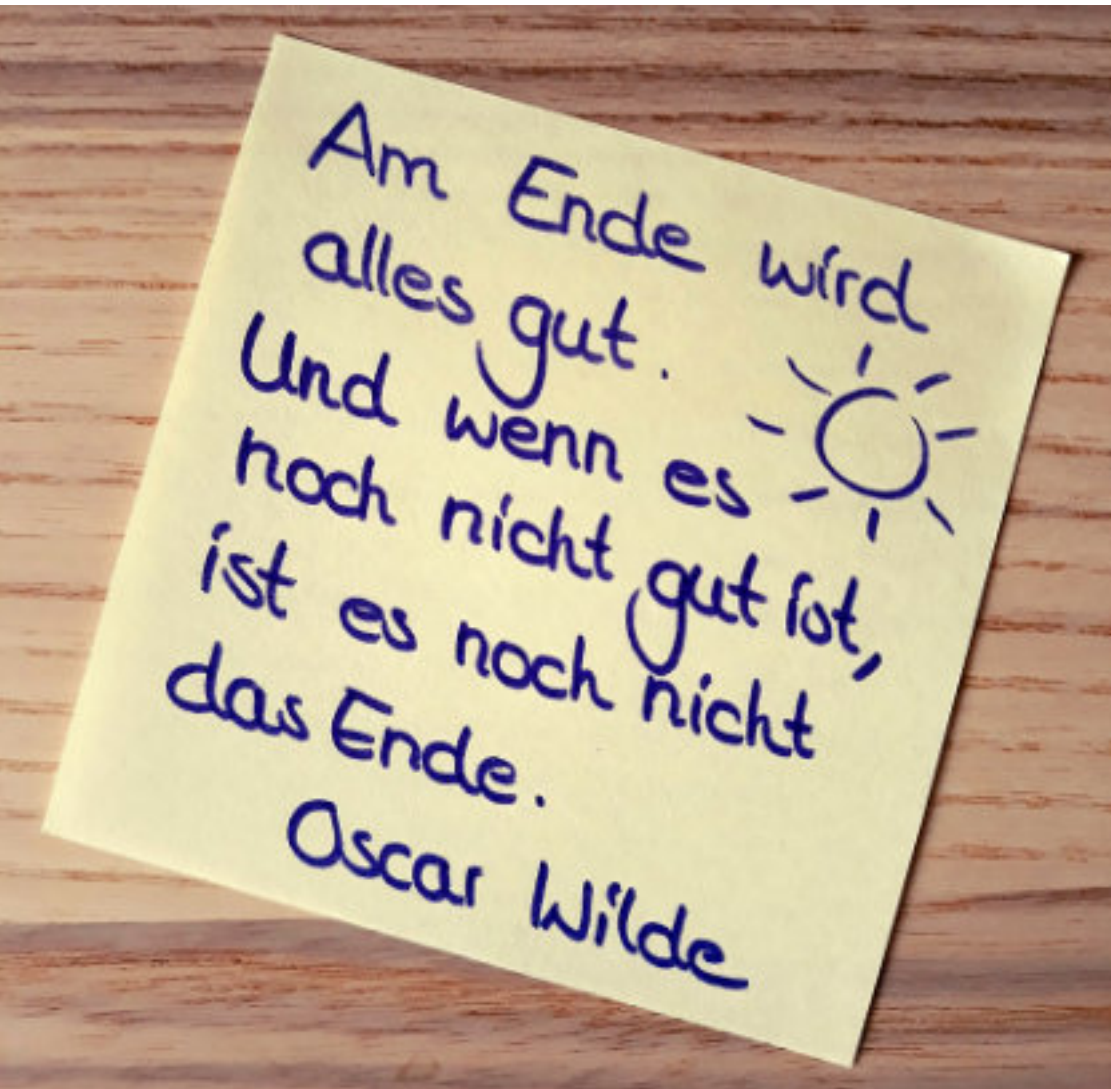 Am Ende wird
alles gut.
Und wenn es
noch nicht gut ist,
ist es noch nicht
das Ende.
Oscar Wilde